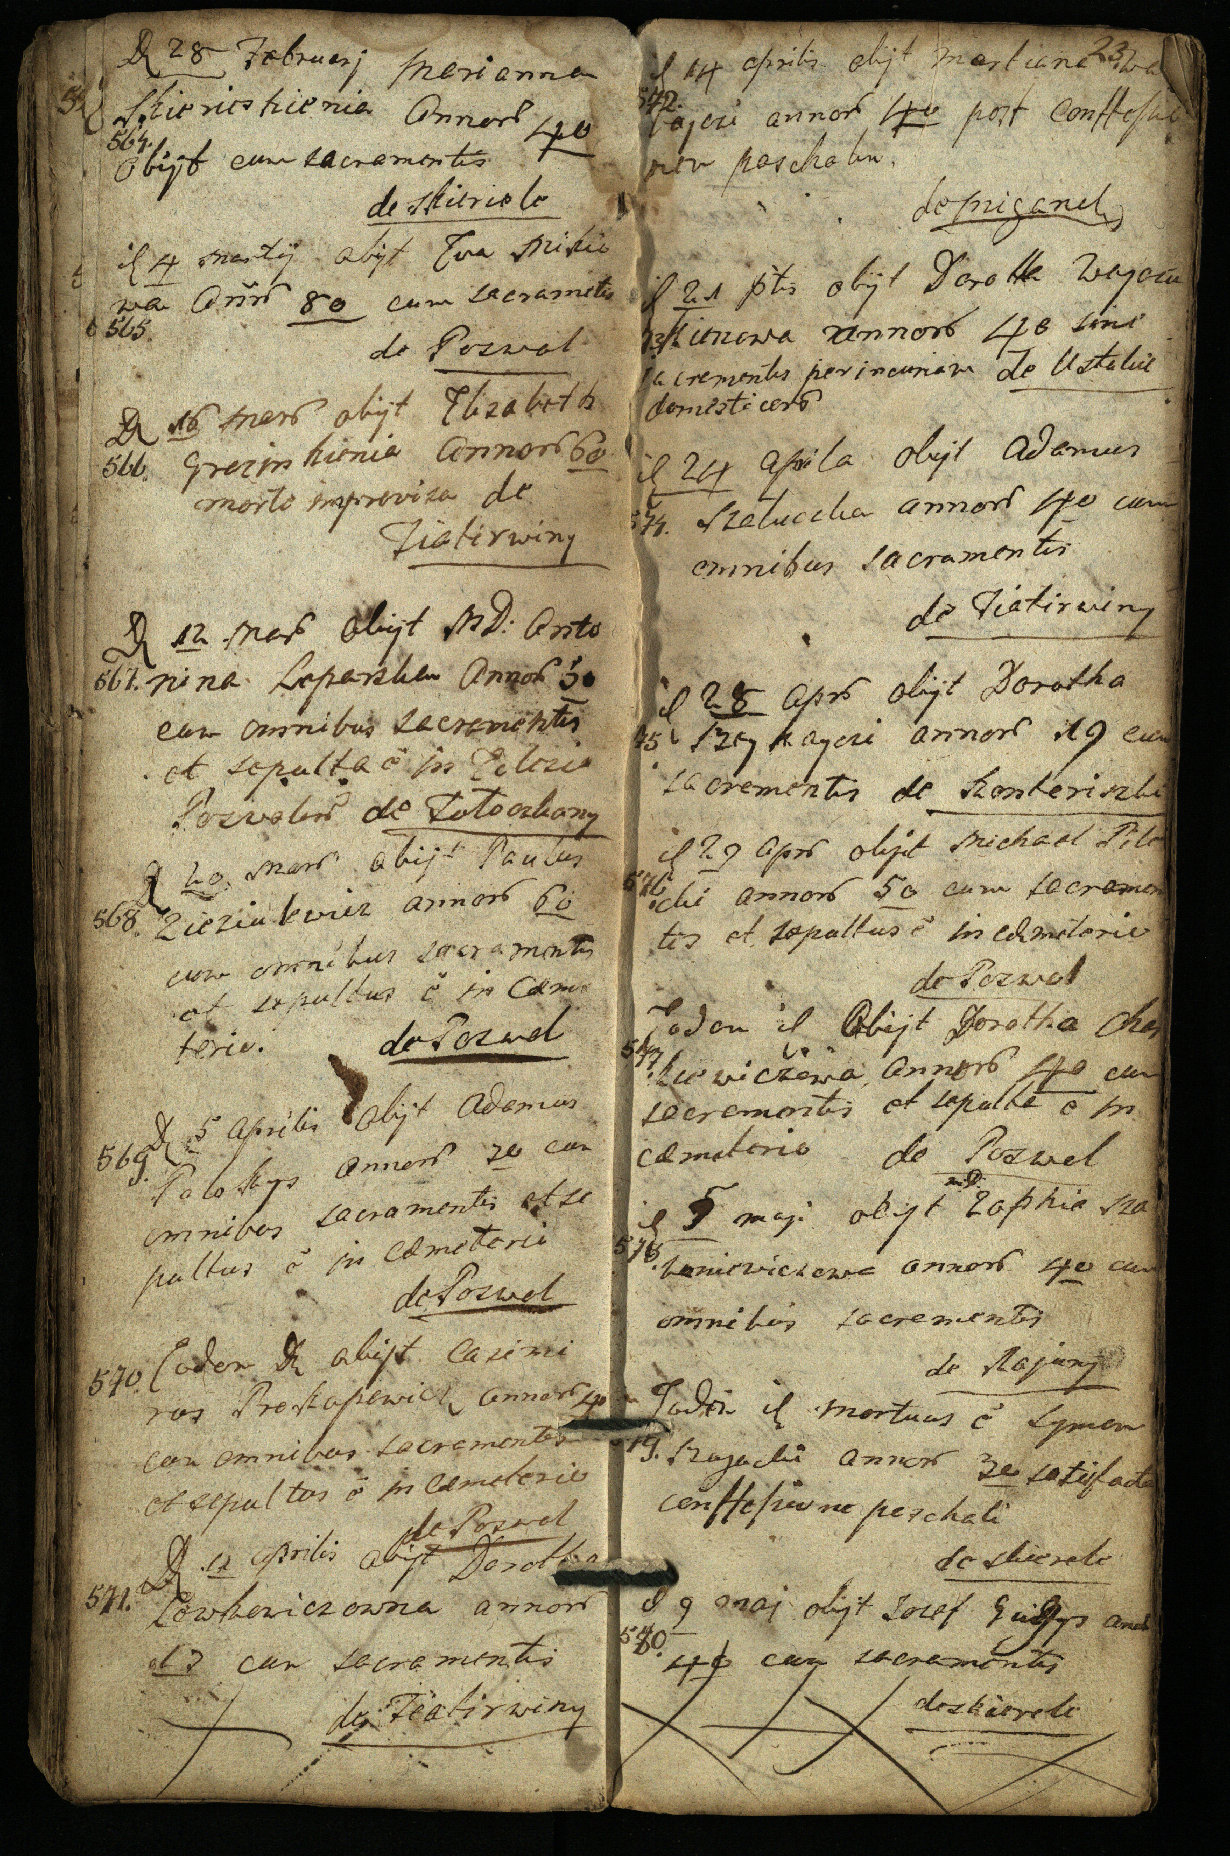 D 28 Februarj Marianna
Skierieskienia Annorũ 40
564.
Obijt cum sacramentis
de Skierele
d 4 Martij obijt Eva Mikie
wa Annorũ 80 cum sacrametis
565.
de Poswol
D 16 Marũ obijt Elizabeth
566. Grezinskienia Annorũ 60
morte improvisa de
Ziatirwiny
D 12 Marũ obijt M.D: Anto
567. nina Loparska Annorũ 50
cum omnibus sacramentis
et sepulta ẽ in Eclesia
Poswolẽ de Totoczkany
D 20 Marũ obijt Paulus
568. Zieziulewicz annorũ 60
cum omnibus sacramentis
et sepultus ẽ in Cæme
terio. de Poswol
D 5 Aprilis obijt Adamus
569. annorũ 30 cum
omnibus sacramentis et se
pultus ẽ in Cæmeterio
de Poswol
570. Eodem D obijt Casimi
rus Proskopewicz annorũ 40
cum omnibus sacramentis
et sepultus ẽ in Cæmeterio
de Poswol
D 12 Aprilis obijt Dorothea
571. Lowkowiczowna annorũ
17 cum sacramentis
de Ziatirwiny
23
d 14 aprilis obijt Marciana
572. annorũ 40 post Confessio
nem paschalem.
de
d 21 ptis obijt Dorotha
annorũ 40 sine
sacramentis per incuriam de Ustukie
domesticorũ
d 24 Aprila obijt Adamus
574. Szaluczka annorũ 40 cum
omnibus sacramentis
de Ziatirwiny
d 28 Aprũ obijt Dorotha
75 annorũ 19 cum
sacramentis de
d 29 Aprũ obijt Michael
576. annorũ 50 cum sacramen
tis et sepultus ẽ in cæmeterio
de Poswol
Eodem d Obijt Dorotha
577. annorũ 40 cum
sacramentis et sepulta ẽ in
cæmeterio de Poswol
M.D.
d 5 maji obijt Zophia Sza
578. annorũ 40 cum
omnibus sacramentis
de Rajuny
Eodem d mortuus ẽ Symon
79. annorũ 30 satisfacta
conffessione paschali
de Skierele
d 9 maj obijt Josef annorũ
580.
40 cum sacramentis
de Skierele